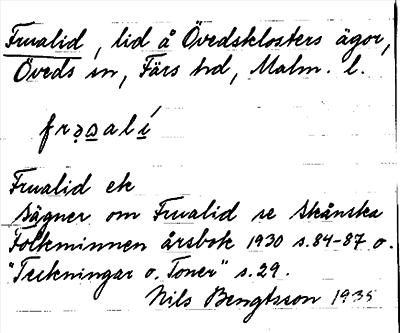 Frualid, lid å Övedsklosters ägor,
Öveds sn, Färs hd, Malm. l.
frəalí
Frualid ek
Sägner om Frualid se Skånska
Folkminnen årsbok 1930 s. 84-87 o.
"Teckningar o. Toner" s. 29.
Nils Bengtsson 1935